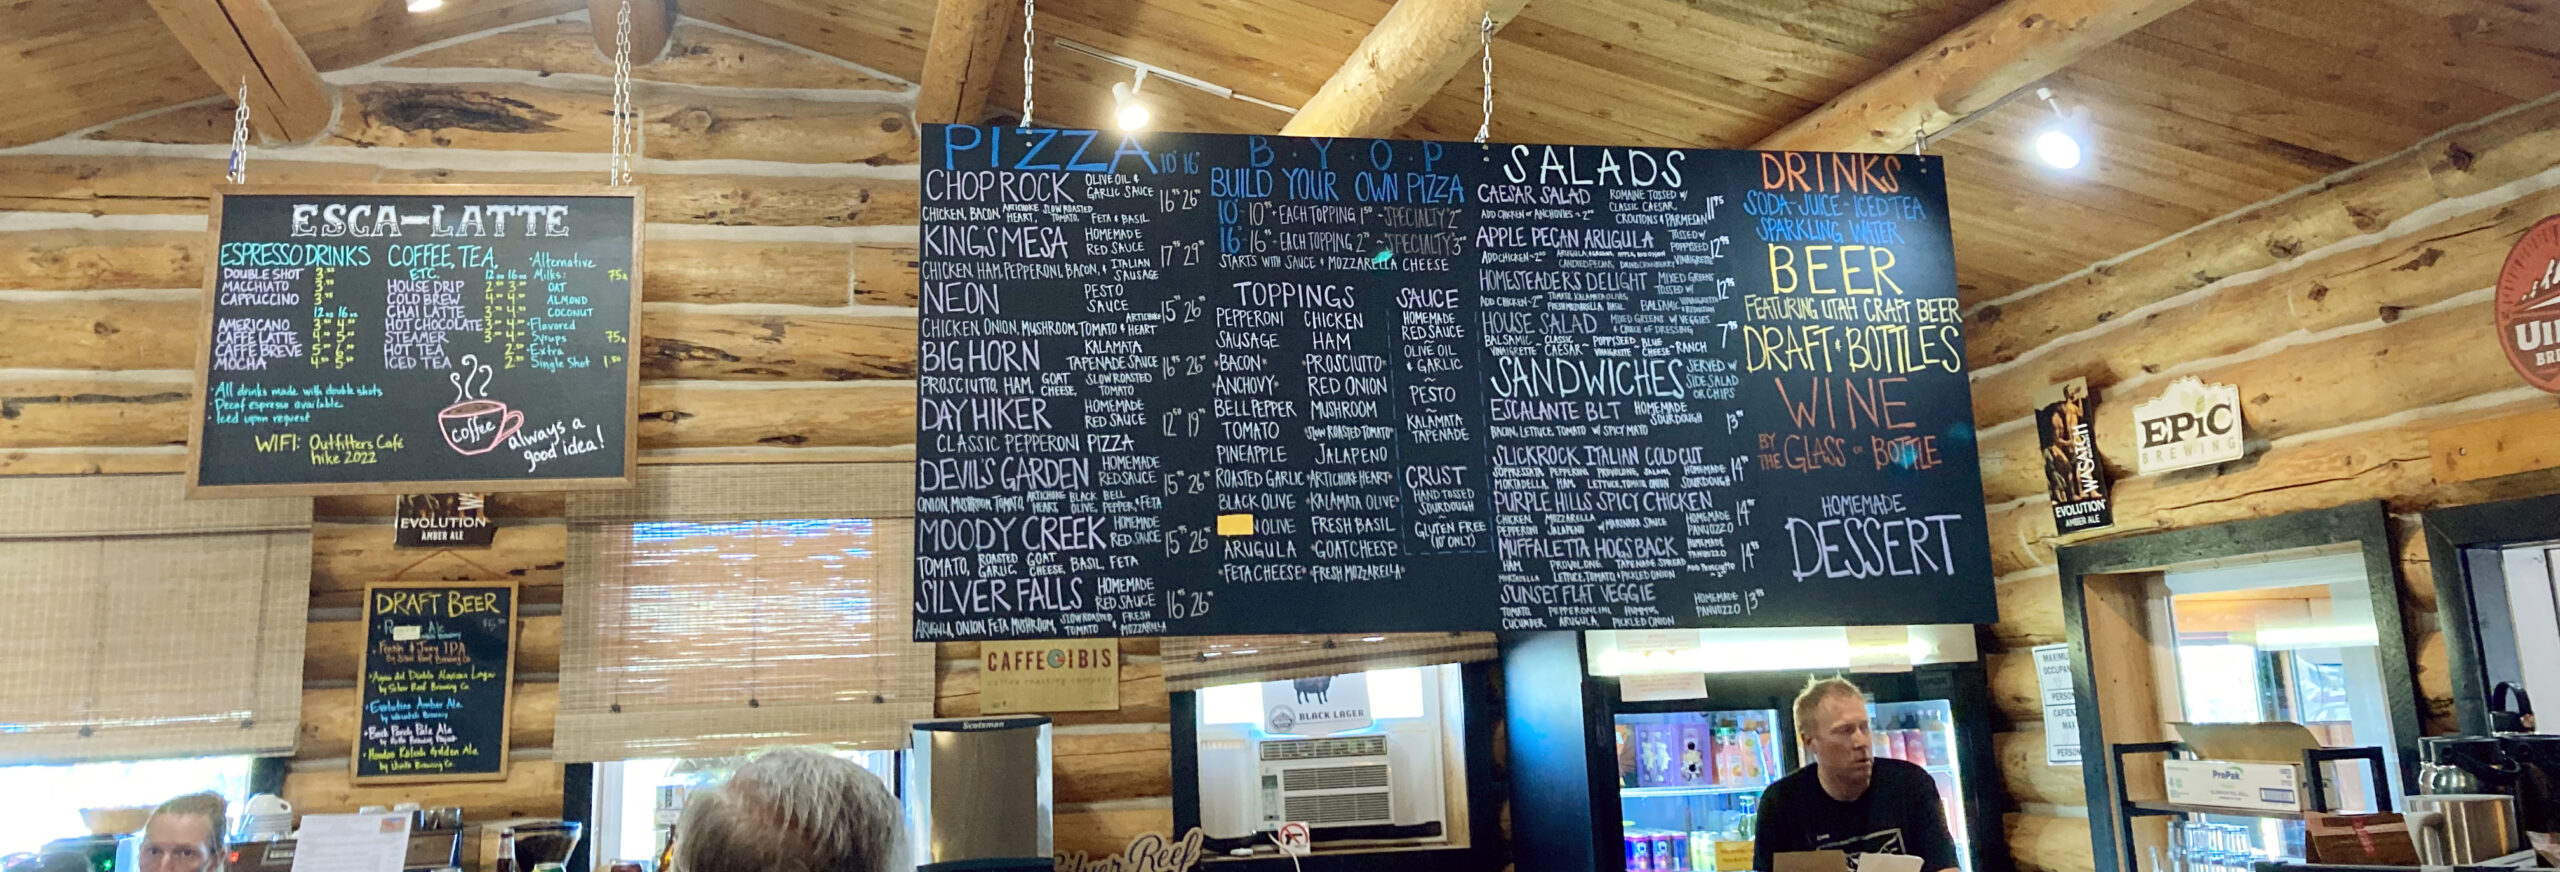 ESCA-LATTE
ESPRESSO DRINKS
DOUBLE SHOT
MACCHIATO
CAPPUCCINO
12oz 16oz
AMERICANO
CAFFE LATTE
CAFFE BREVE
MOCHA
COFFEE, TEA, ETC.
12oz 16oz
HOUSE DRIP
COLD BREW
CHAI LATTE
HOT CHOCOLATE
STEAMER
HOT TEA
ICED TEA
•Alternative
Milks: 75¢
OAT
ALMOND
COCONUT
•Flavored
Syrups 75¢
•Extra
Single Shot 1.50
•All drinks made with double shots
•Decaf espresso available
•Iced upon request
WIFI: Outfitters Café
hike 2022
coffee
always a
good idea!
EVOLUTION
AMBER ALE
DRAFT BEER
Ale
IPA
by Silver Reef Brewing Co.
•Agua del Diablo Mexican Lager
by Silver Reef Brewing Co.
•Evolution Amber Ale
by Wasatch Brewery
•Back Porch Pale Ale
Golden Ale
by Uinta Brewing Co.
PIZZA 10" 16"
CHOP ROCK OLIVE OIL & GARLIC SAUCE 16⁹⁵ 26⁹⁵
CHICKEN, BACON, ARTICHOKE HEART, SLOW ROASTED TOMATO, FETA & BASIL
KING'S MESA HOMEMADE RED SAUCE 17⁹⁵ 29⁹⁵
CHICKEN, HAM, PEPPERONI, BACON, & ITALIAN SAUSAGE
NEON PESTO SAUCE 15⁹⁵ 26⁹⁵
CHICKEN, ONION, MUSHROOM, TOMATO & ARTICHOKE HEART
BIG HORN KALAMATA TAPENADE SAUCE 16⁹⁵ 26⁹⁵
PROSCIUTTO, HAM, GOAT CHEESE, SLOW ROASTED TOMATO
DAY HIKER HOMEMADE RED SAUCE 12⁵⁰ 19⁹⁵
CLASSIC PEPPERONI PIZZA
DEVIL'S GARDEN HOMEMADE RED SAUCE 15⁹⁵ 26⁹⁵
ONION, MUSHROOM, TOMATO, ARTICHOKE HEART, BLACK OLIVE, BELL PEPPER, & FETA
MOODY CREEK HOMEMADE RED SAUCE 15⁹⁵ 26⁹⁵
TOMATO, ROASTED GARLIC, GOAT CHEESE, BASIL, FETA
SILVER FALLS HOMEMADE RED SAUCE 16⁹⁵ 26⁹⁵
ARUGULA, ONION, FETA, MUSHROOM, SLOW ROASTED TOMATO & FRESH MOZZARELLA
B.Y.O.P
BUILD YOUR OWN PIZZA
10" - 10⁹⁵ + EACH TOPPING 1⁵⁰ ~ SPECIALTY 2⁰⁰
16" - 16⁹⁵ + EACH TOPPING 2⁰⁰ ~ SPECIALTY 3⁰⁰
STARTS WITH SAUCE & MOZZARELLA CHEESE
TOPPINGS
PEPPERONI CHICKEN
SAUSAGE HAM
*BACON* *PROSCIUTTO*
*ANCHOVY* RED ONION
BELL PEPPER MUSHROOM
TOMATO *SLOW ROASTED TOMATO*
PINEAPPLE JALAPENO
ROASTED GARLIC *ARTICHOKE HEART*
BLACK OLIVE *KALAMATA OLIVE*
N OLIVE FRESH BASIL
ARUGULA *GOAT CHEESE
*FETA CHEESE* *FRESH MOZZARELLA*
SAUCE
HOMEMADE
RED SAUCE
~
OLIVE OIL
& GARLIC
~
PESTO
~
KALAMATA
TAPENADE
CRUST
HAND TOSSED
SOURDOUGH
~
GLUTEN FREE
(10" ONLY)
SALADS
CAESAR SALAD ROMAINE TOSSED W/ CLASSIC CAESAR, CROUTONS & PARMESAN 11⁹⁵
ADD CHICKEN OR ANCHOVIES ~ 2⁰⁰
APPLE PECAN ARUGULA TOSSED W/ POPPYSEED VINAIGRETTE 12⁹⁵
ADD CHICKEN ~ 2⁰⁰
HOMESTEADERS DELIGHT MIXED GREENS TOSSED W/ BALSAMIC VINAIGRETTE & REDUCTION 12⁹⁵
ADD CHICKEN ~ 2⁰⁰ TOMATO, KALAMATA OLIVES, FRESH MOZZARELLA, BASIL
HOUSE SALAD MIXED GREENS W/ VEGGIES & CHOICE OF DRESSING 7⁹⁵
BALSAMIC VINAIGRETTE ~ CLASSIC CAESAR ~ POPPYSEED VINAIGRETTE ~ BLUE CHEESE ~ RANCH
SANDWICHES SERVED W/ SIDE SALAD OR CHIPS
ESCALANTE BLT HOMEMADE SOURDOUGH 13⁹⁵
BACON, LETTUCE, TOMATO W/ SPICY MAYO
SLICKROCK ITALIAN COLD CUT 14⁹⁵
SOPPRESSATA, PEPPERONI, PROVOLONE, SALAMI, HOMEMADE SOURDOUGH
MORTADELLA, HAM, LETTUCE, TOMATO, ONION
PURPLE HILLS SPICY CHICKEN 14⁹⁵
CHICKEN, MOZZARELLA W/ MARINARA SAUCE HOMEMADE PANUOZZO
PEPPERONI JALAPENO
MUFFALETTA HOGSBACK HOMEMADE PANUOZZO 14⁹⁵
HAM, PROVOLONE, TAPENADE SPREAD
MORTADELLA LETTUCE, TOMATO & PICKLED ONION
SUNSET FLAT VEGGIE HOMEMADE PANUOZZO 13⁹⁵
TOMATO, PEPPERONCINI, HUMMUS,
CUCUMBER, ARUGULA, PICKLED ONION
DRINKS
SODA~JUICE~ICED TEA
SPARKLING WATER
BEER
FEATURING UTAH CRAFT BEER
DRAFT & BOTTLES
WINE
BY THE GLASS OR BOTTLE
HOMEMADE
DESSERT
CAFFE IBIS
coffee roasting company
Scotsman
BLACK LAGER
Silver Reef
WASATCH
EVOLUTION
AMBER ALE
EPIC
BREWING
UIN
BRE
MAXIMU
OCCUPAN
PERSON
MAX
PERSON
ProPak